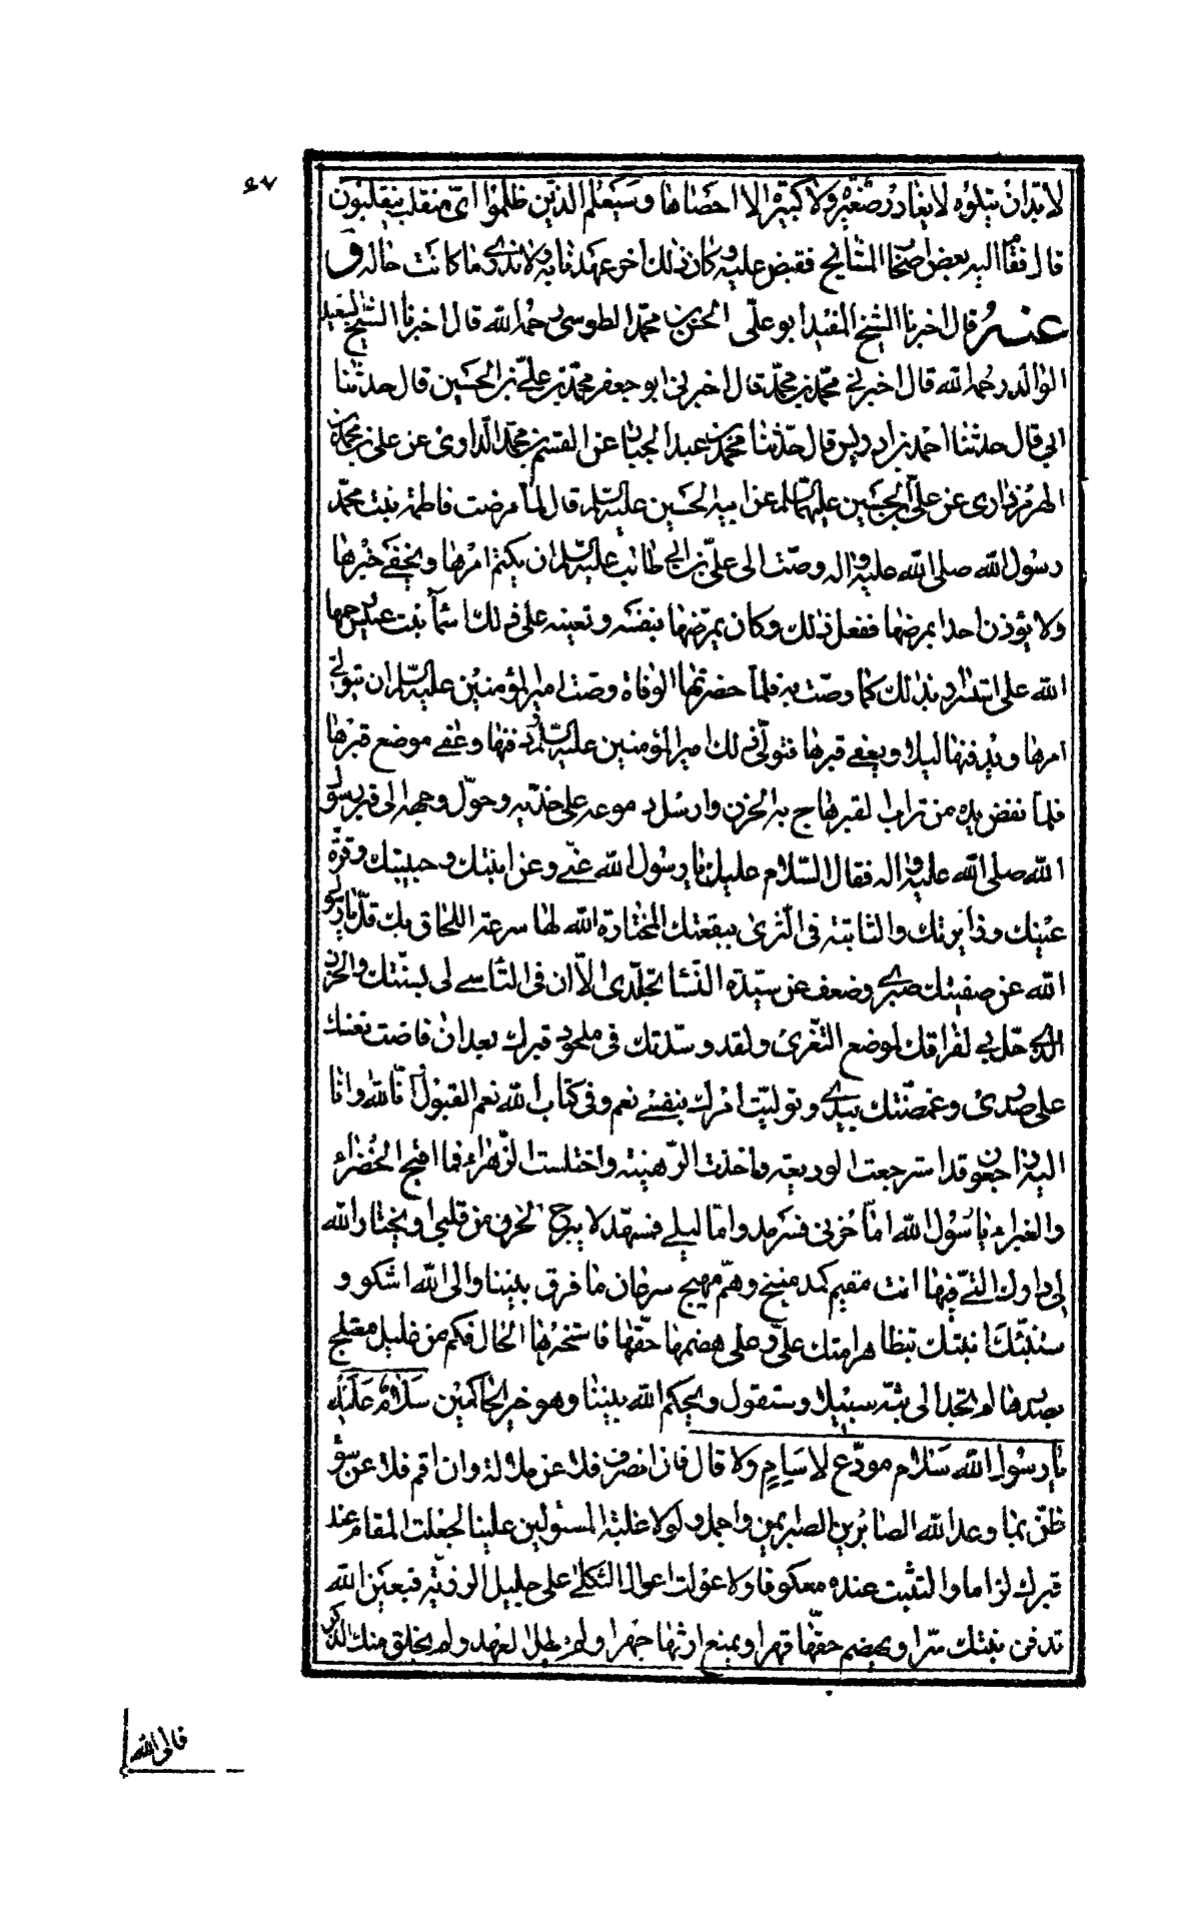 ٩٧
لا بد ان تتلوه لا يغادر صغيرة ولا كبيرة الا احصاها وسيعلم الذين ظلموا اىّ منقلب ينقلبون
قال فقام اليه بعض اصحاب المشايخ فقبض عليه وكان ذلك اخر عهدنا به ولا ندرى ما كانت حاله و
عنه قال اخبرنا الشيخ المفيد ابو علّى الحسن بن محمّد الطوسى رحمه الله قال اخبرنا الشيخ السعيد
الوالد رحمه الله قال اخبرنى محمّد بن محمّد قال اخبرنى ابو جعفر محمّد بن علىّ بن الحسين قال حدثنا
ابى قال حدثنا احمد بن ادريس قال حدّثنا محمد بن عبد الجبار عن القسم بن محمّد الرّاوى عن على بن محمد بن
الهرمزدارى عن علىّ بن الحسين عليهما السلم عن ابيه الحسين عليه السلم قال لمّا مرضت فاطمة بنت محمّد
رسول الله صلى الله عليه واله وصّت الى علىّ بن ابى طالب عليه السلم ان يكتم امرها ويخفى خبرها
ولا يؤذن احدا بمرضها ففعل ذلك وكان يمرّضها بنفسه وتعينه على ذلك اسمآ بنت عميس رحمها
الله على استسرار بذلك كما وصّت به فلما حضرتها الوفاة وصّت امير المؤمنين عليه السلم ان يتولى
امرها ويدفنها ليلا ويعفى قبرها فتولّى ذلك امير المؤمنين عليه السلم ودفنها وعفى موضع قبرها
فلما نفض يده من تراب القبر هاج به الحزن وارسل دموعه على خدّيه وحوّل وجهه الى قبر رسول
الله صلى الله عليه واله فقال السّلام عليك يا رسول الله عنّى وعن ابنتك وحبيبتك وقرّة
عينك وزايرتك والثابتة فى الثّرى ببقعتك المختار الله لها سرعة اللحاق بك قلّ يا رسول
الله عن صفيتك صبرى وضعف عن سيّدة النّسا تجلّدى الّا ان فى التّاسى لى بسنّتك والحزن
الذى حلّ بى لفراقك لموضع التّعزى ولقد وسّدتك فى ملحود قبرك بعد ان فاضت نفسك
على صدرى وغمضتك بيدى وتوليت امرك بنفسى نعم وفى كتاب الله نعم القبول انا لله وانا
اليه راجعون قد استرجعت الوديعة واخذت الرّهينة واختلست الزّهراء فما اقبح الخضراء
والغبراء يا رسول الله امّا حُزنى فسرمد وامّا ليلى فمسهّد لا يبرح الحزن من قلبى او يختار الله
لى دارك الّتى فيها انت مقيم كمد مقيح وهمّ مهيج سرعان ما فرق بيننا والى الله اشكو و
ستنبّئك ابنتك بتظاهر امتك علىّ وعلى هضمها حقّها فاستخبرها الحال فكم من غليل معتلج
بصدرها لم تجد الى بثّه سبيلا وستقول ويحكم الله بيننا وهو خير الحاكمين سَلامٌ عَليكَ
يا رسول الله سَلام مودّع لا سَايمٍ ولا قال فان انصرف فلا عن ملالة وان اقم فلا عن سؤ
ظنّ بما وعد الله الصّابرين الصبر ايمن واجمل ولولا غلبة المستولين علينا لجعلت المقام عند
قبرك لزاما والتلبث عنده معكوفا ولاعولت اعوال الثّكلى على جليل الرزيّة فبعين الله
تدفن بنتك سرّا ويهضم حقّها قهرا ويمنع ارثها جهرا ولم يطل العهد ولم يخلق منك الذكر
فالى الله